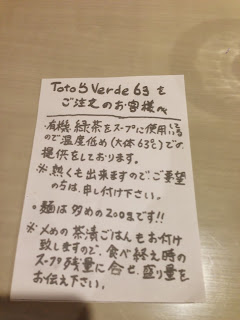 Toto与Verde63を
ご注文のお客様へ
・有機緑茶をスープに使用している
ので温度低め(大体63℃)での
提供をしております。
※熱くも出来ますのでご要望
の方は申し付け下さい。
。麺は多めの200gです!!
※〆めの茶漬ごはんもお付け
致しますので、食べ終え時の
スープ残量に合せ、盛り量を
お伝え下さい。